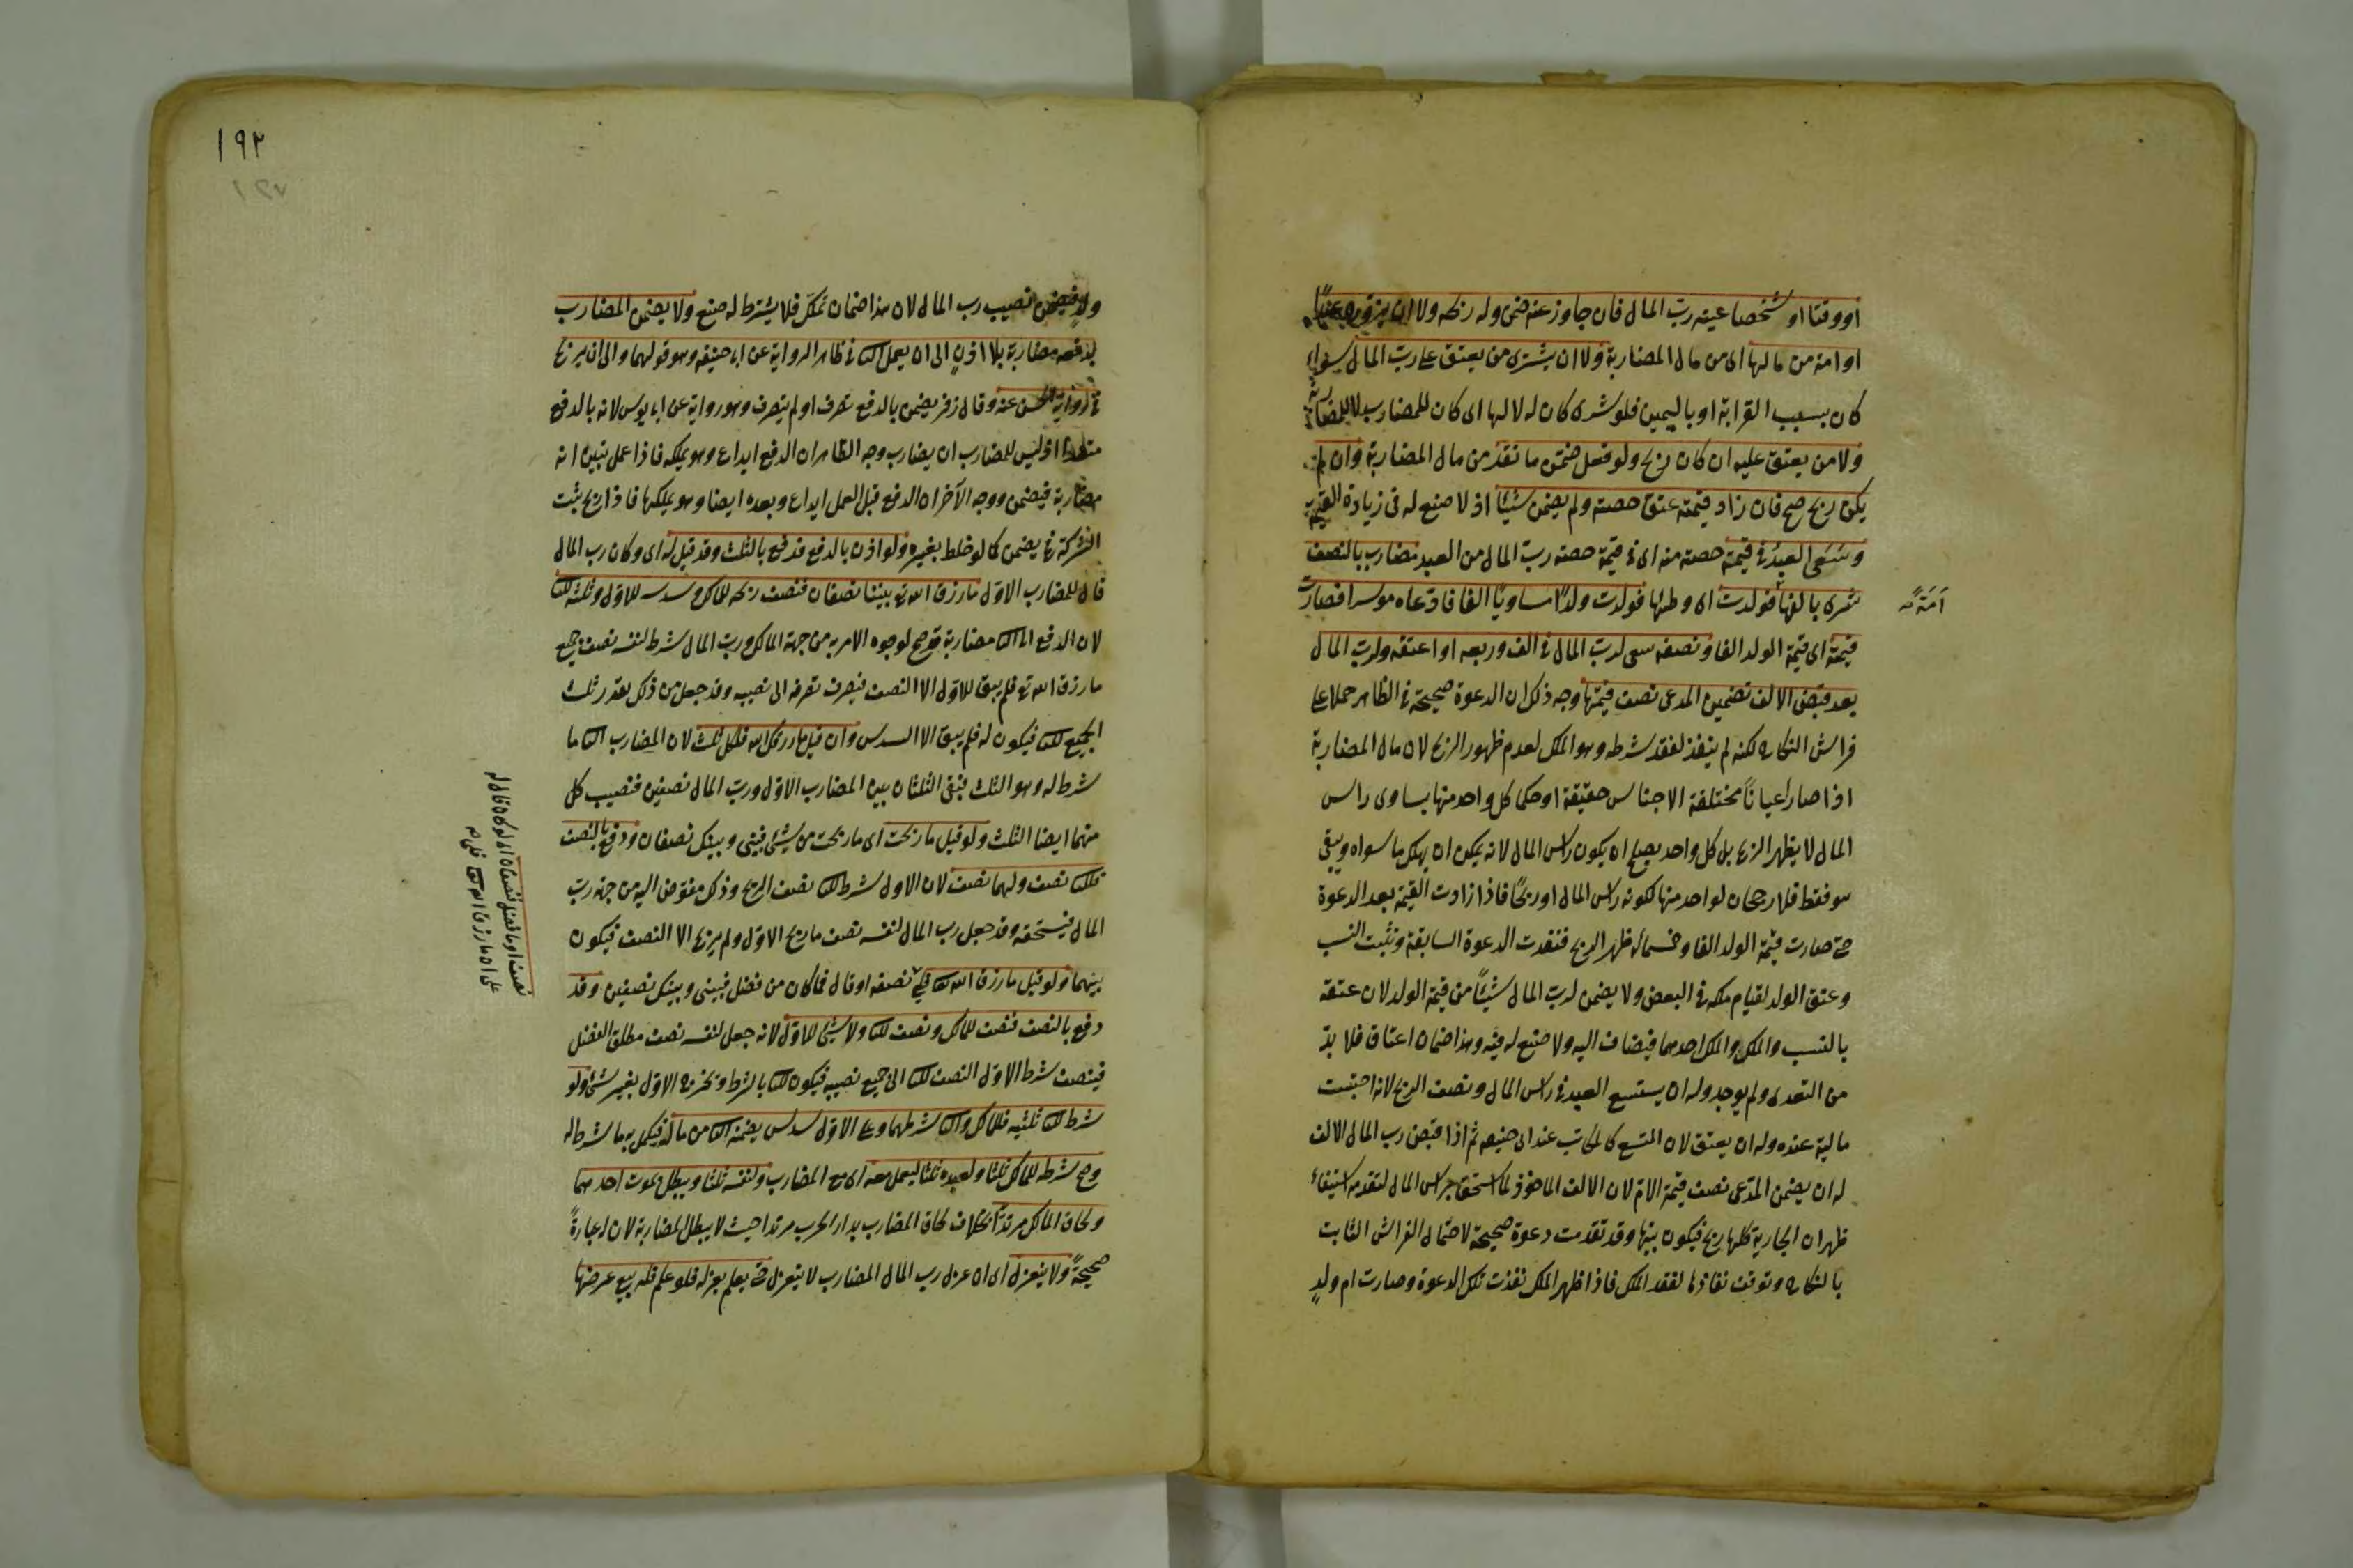 او وقتا او شخصا عينه رب المال فان جاوز عنه ضمن وله ربحه ولا ان يزوج عبدا
او امة من مالها اى من مال المضاربة ولا ان يشترى من يعتق على رب المال سواء
كان بسبب القرابة او باليمين فلو شرى كان له لا لها اى كان للمضارب لا للمضاربة
ولا من يعتق عليه ان كان ربح ولو فعل ضمن ما نقد من مال المضاربة وان لم
يكن ربح صح فان زاد قيمته عتق حصته ولم يضمن شيئا اذ لا صنع له فى زيادة القيمة
وسعى العبد فى قيمة حصته منه اى فى قيمة حصة رب المال من العبد مضارب بالنصف
شرى بالفها فولدت اى وطئها فولدت ولدا مساويا الفا فادعاه موسرا فصارت
امة صح
قيمته اى قيمة الولد الفا ونصفه سعى لرب المال فى الف وربعه او اعتقه ولرب المال
بعد قبض الالف تضمين المدعى نصف قيمتها وجه ذلك ان الدعوة صحيحة فى الظاهر حملا على
فراش النكاح لكنه لم ينفذ لفقد شرطه وهو الملك لعدم ظهور الربح لان مال المضاربة
اذا صار اعيانا مختلفة الاجناس حقيقة او حكما كل واحد منها يساوى راس
المال لا يظهر الربح بل كل واحد يصلح ان يكون راس المال لانه يمكن ان يهلك ما سواه ويبقى
هو فقط فلا رجحان لواحد منها لكونه راس المال او ربحا فاذا زادت القيمة بعد الدعوة
حتى صارت قيمة الولد الفا وخمسمائة ظهر الربح فنفذت الدعوة السابقة وثبت النسب
وعتق الولد لقيام ملكه فى البعض ولا يضمن لرب المال شيئا من قيمة الولد لان عتقه
بالنسب والملك والملك احدهما فيضاف اليه ولا صنع له فيه وهذا ضمان اعتاق فلا بد
من التعدى ولم يوجد وله ان يستسع العبد فى راس المال ونصف الربح لانه احتبست
مالية عنده وله ان يعتق لان المتسع كالمكاتب عند ابى حنيفه ثم اذا قبض رب المال الالف
له ان يضمن المدعى نصف قيمة الام لان الالف الماخوذ لما استحق براس المال لتقدمه استيفاء
ظهر ان الجارية كلها ربح فيكون بينهما وقد تقدمت دعوة صحيحة لاحتمال الفراش الثابت
بالنكاح وتوقف نفاذها لفقد الملك فاذا ظهر الملك نفذت تلك الدعوة وصارت ام ولد
١٩٢
ولا فيضمن نصيب رب المال لان هذا ضمان تملك فلا يشترط له صنع ولا يضمن المضارب
بدفعه مضاربة بلا اذن الى ان يعمل الثانى فى ظاهر الرواية عن ابى حنيفه وهو قولهما والى ان يربح
فى رواية الحسن عنه وقال زفر يضمن بالدفع تصرف او لم يتصرف وهو رواية عن ابى يوسف لانه بالدفع
متعدا اذ ليس للمضارب ان يضارب وجه الظاهر ان الدفع ايداع وهو يملكه فاذا عمل تبين انه
مضاربة فيضمن ووجه الآخر ان الدفع قبل العمل ايداع وبعده ابضاع وهو يملكها فاذا ربح يثبت
الشركة فح يضمن كما لو خلط بغيره ولو اذن بالدفع فدفع بالثلث وقد قيل له اى وكان رب المال
قال للمضارب الاول ما رزق الله تع بيننا نصفان فنصف ربحه للمالك وسدسه للاول وثلثه للثانى
لان الدفع الى الثانى مضاربة قد صح لوجود الامر به من جهة المالك ورب المال شرط لنفسه نصف جميع
ما رزق الله تع فلم يبق للاول الا النصف فينصرف تصرفه الى نصيبه وقد جعل من ذلك بقدر ثلث
الجميع للثانى فيكون له فلم يبق الا السدس وان قيل ما رزقك الله فلكل ثلث لان المضارب الثانى ما
شرط له وهو الثلث فبقى الثلثان بين المضارب الاول ورب المال نصفين فنصيب كل
منهما ايضا الثلث ولو قيل ما ربحت اى ما ربحت من شئ فبينى وبينك نصفان ودفع بالنصف
فللثانى نصف ولهما نصف لان الاول شرط للثانى نصف الربح وذلك مفوض اليه من جهة رب
المال فيستحقه وقد جعل رب المال لنفسه نصف ما ربح الاول ولم يربح الا النصف فيكون
بينهما ولو قيل ما رزق الله تعالى فلى نصفه او قال فما كان من فضل فبينى وبينك نصفين وقد
دفع بالنصف فنصف للمالك ونصف للثانى ولا شئ للاول لانه جعل لنفسه نصف مطلق الفضل
فينصرف شرط الاول النصف للثانى الى جميع نصيبه فيكون للثانى بالشرط ويخرج الاول بغير شئ ولو
شرط للثانى ثلثيه فللمالك والثانى شرطهما وعلى الاول سدس يضمنه للثانى من ماله فيكمل به ما شرط له
وصح شرطه للمالك ثلثا ولعبده ثلثا ليعمل معه اى مع المضارب ولنفسه ثلثا ويبطل بموت احدهما
ولحاق المالك مرتدا بخلاف لحاق المضارب بدار الحرب مرتدا حيث لا يبطل المضاربة لان له عبارة
صحيحة ولا ينعزل اى ان عزل رب المال المضارب لا ينعزل حتى يعلم بعزله فلو علم فله بيع عرضها